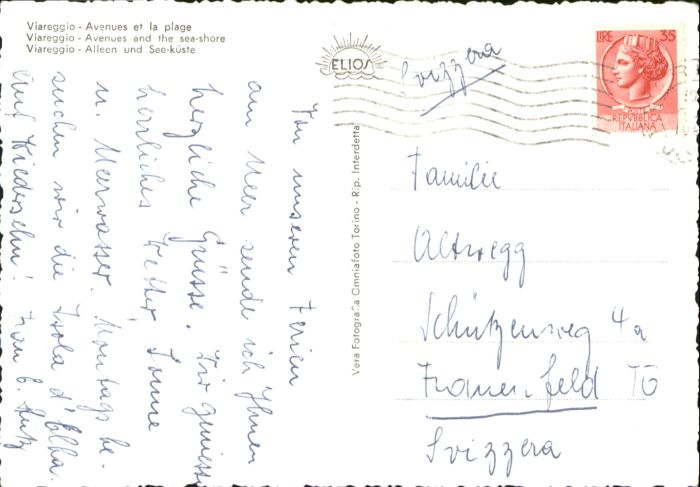 Viareggio - Avenues et la plage
Viareggio - Avenues and the sea-shore
Viareggio - Alleen und See-küste
ELIOS
Svizzera
LIRE 35
POSTE
REPVBBLICA
ITALIANA
Von unseren Ferien
am Meer sende ich Ihnen
herzliche Grüsse. Wir geniessen
herrliches Wetter, Sonne
u. Meerwasser. Montags be-
suchen wir die Isola d'Elba.
Auf Wiedersehn!
Vera Fotografia Omniafoto Torino - Rip. Interdetta
Familie
Altwegg
Schützenweg 4a
Frauenfeld TG
Svizzera